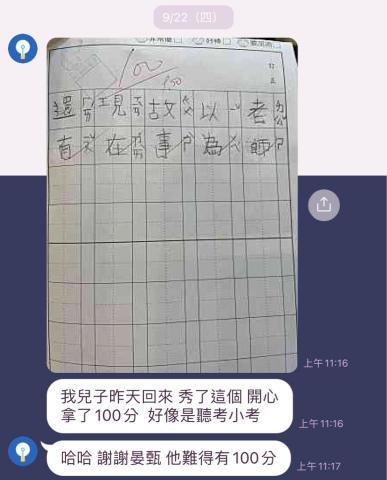 9/22（四）
非常棒 好棒
100
100
老師
以為
故事
現在
還有
上午11:16
我兒子昨天回來 秀了這個 開心
拿了100分 好像是聽考小考
上午11:16
哈哈 謝謝晏甄 他難得有100分
上午11:17